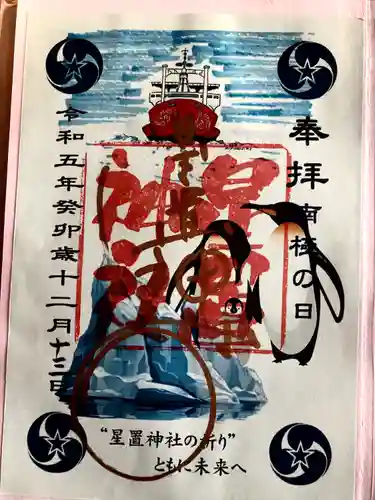 奉拝
南極の日
星置神社
令和五年癸卯歳十二月十三日
“星置神社の祈り”
ともに未来へ